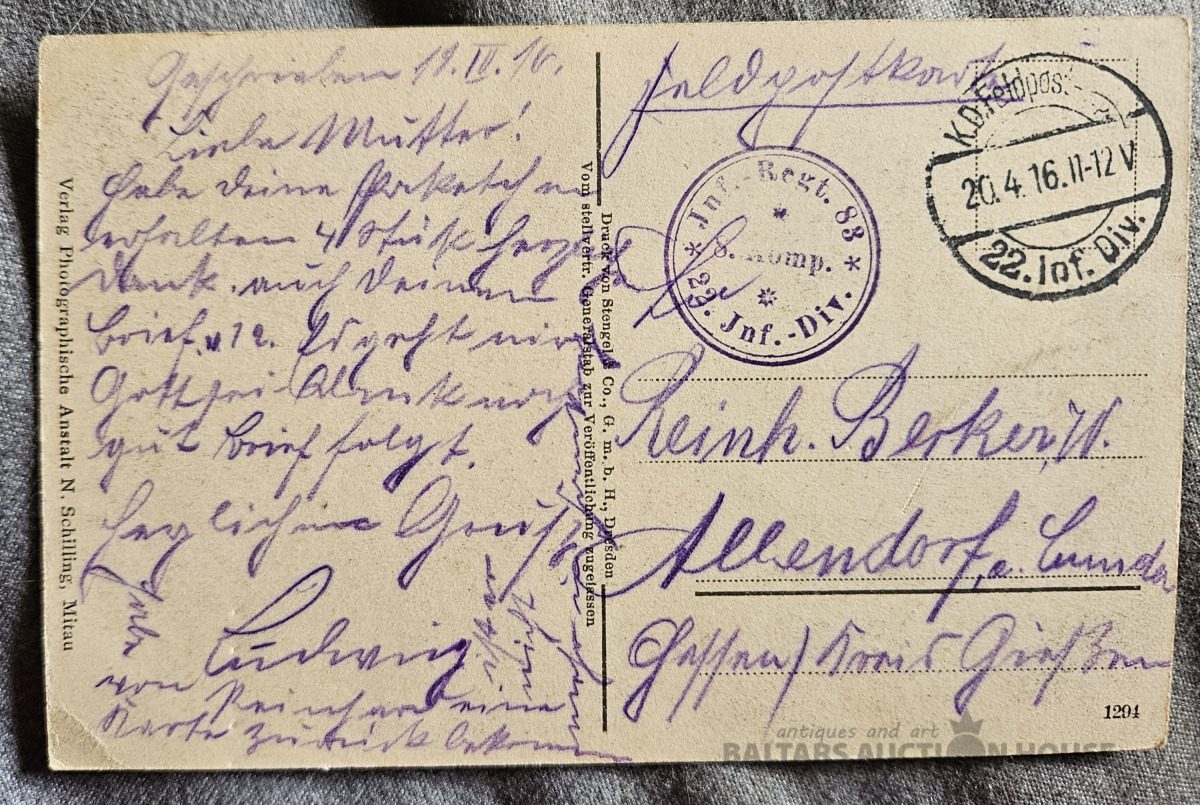 Geschrieben 19. IV. 16.
Liebe Mutter!
Habe deine Paketchen
erhalten 4 Stück herzl.
Dank. auch deinen
Brief. v 12. Es geht mir
Gott sei Dank noch
gut Brief folgt.
Herzlichen Gruß
Ludwig
Habe
von Reinhard eine
Karte zurück bekommen
Verlag Photographische Anstalt N. Schilling, Mitau
Vom stellvertr. Generalstab zur Veröffentlichung zugelassen
Druck von Stengel & Co., G. m. b. H., Dresden
Feldpostkarte
K.D. Feldpost
20.4.16.11-12 V
22. Inf. Div.
Inf.-Regt. 83
8. Komp.
22. Inf.-Div.
Reinh. Becker,
Allendorf, a. Lumda
Hessen / Kreis Gießen
1294
antiques and art
BALTARS AUCTION HOUSE